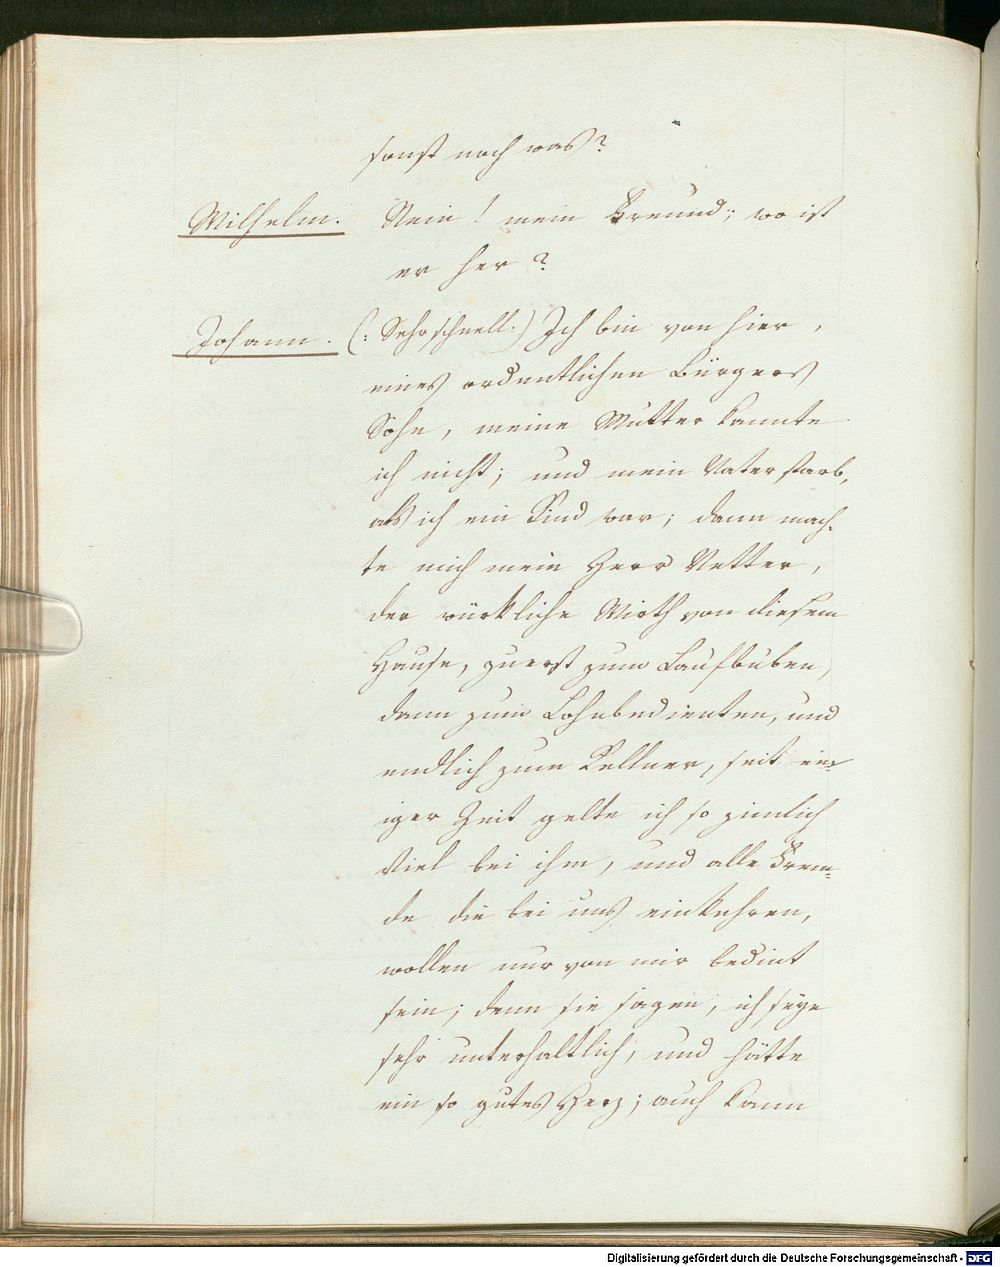 sonst noch was?
Wilhelm. Nein! mein Freund; wo ist
er her?
Johann. (: Sehr schnell.) Ich bin von hier,
eines ordentlichen Bürgers
Sohn, meine Mutter kannte
ich nicht; und mein Vater starb,
als ich ein Kind war; dann mach-
te mich mein Herr Vetter,
der würkliche Wirth von diesem
Hause, zuerst zum Laufbuben,
dann zum Lohnbedienten, und
endlich zum Kellner, seit ein-
iger Zeit gelte ich so zimlich
viel bei ihm, und alle Frem-
de die bei uns einkehren,
wollen nur von mir bedint
sein; denn sie sagen, ich seye
sehr unterhaltlich, und hätte
ein so gutes Herz; auch kann
Digitalisierung gefördert durch die Deutsche Forschungsgemeinschaft - DFG